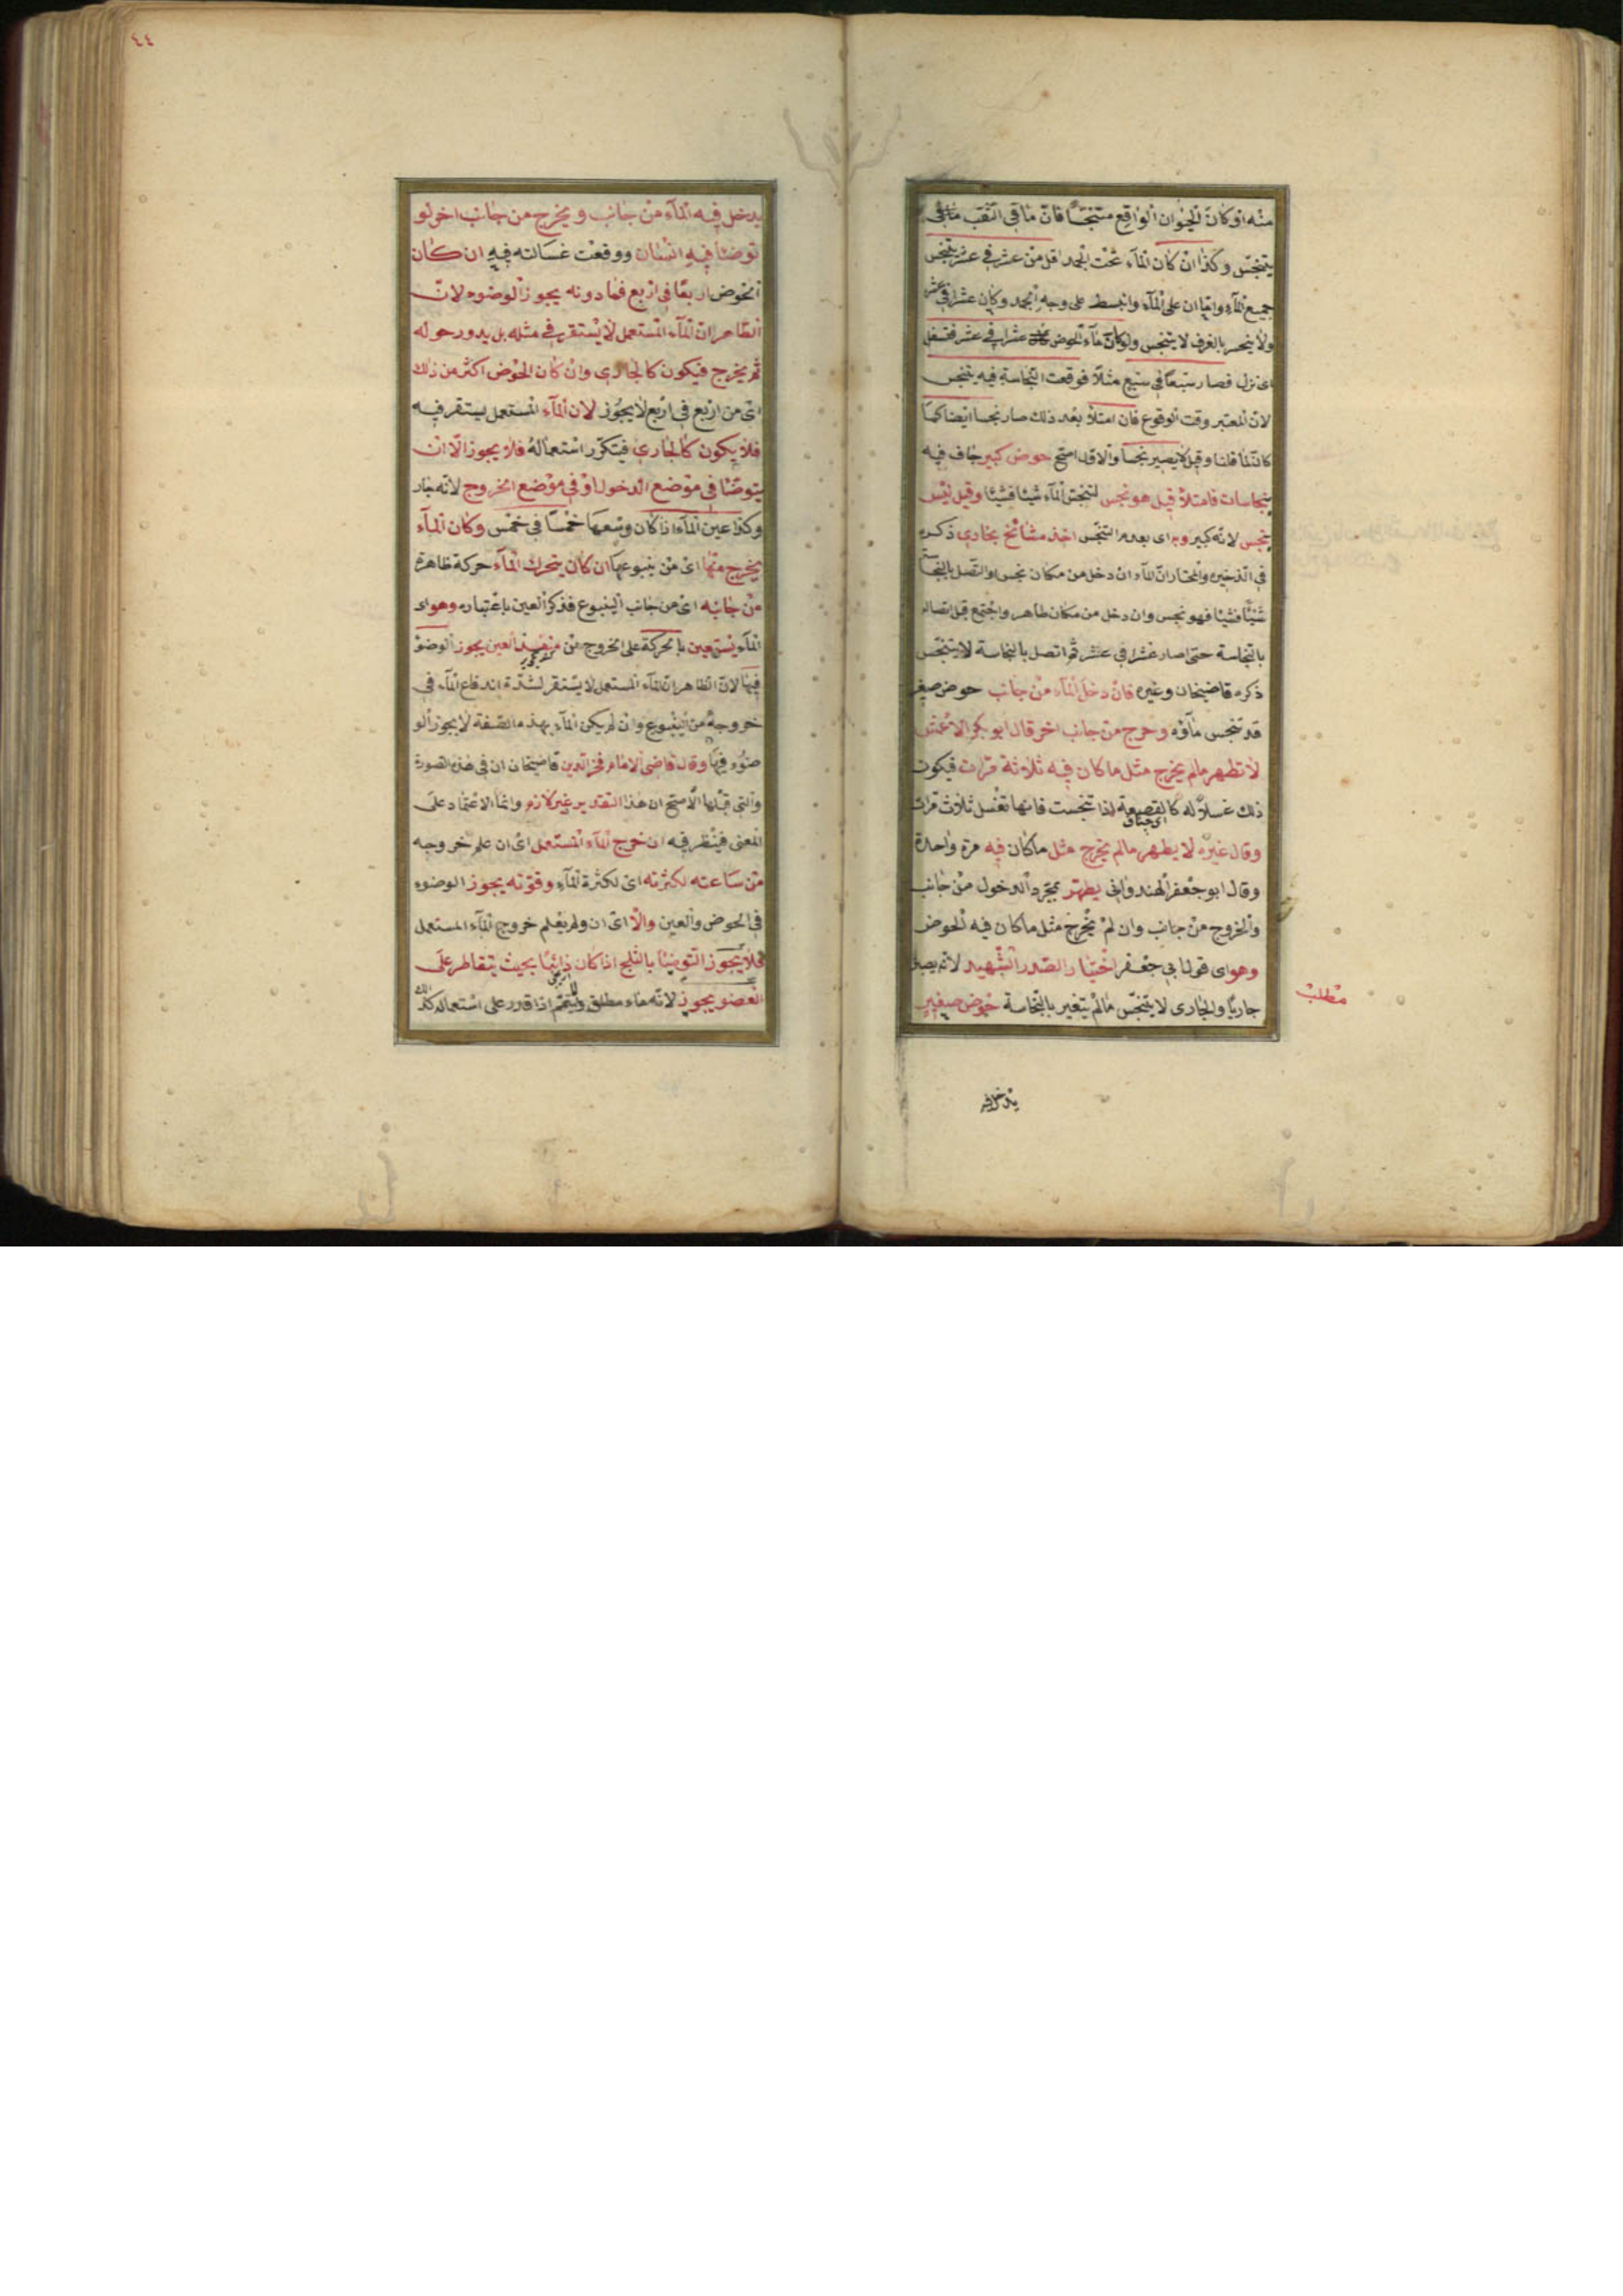 منه او كان الحيوان الواقع متنجسًا فان ما في الثقب
يتنجس وكذا ان كان الماء تحت الجمد اقل من عشر في عشر يتنجس
جميع الماء واما ان على الماء وانبسط على وجه الجمد وكان عشرا في عشر
ولا ينحسر بالغرف لا يتنجس ولو كان ماء الحوض عشرا في عشر فتسفل
اى نزل فصار سبعًا في سبع مثلًا فوقعت النجاسة فيه يتنجس
لان المعتبر وقت الوقوع فان امتلأ بعد ذلك صار نجسا ايضا كما
كان لما قلنا وقيل لا يصير نجسا والاول اصح حوض كبير جاف فيه
نجاسات فامتلأ قيل هو نجس لتنجس الماء شيئا فشيئا وقيل ليس
بنجس لانه كبير وبه اى بعدم التنجس اخذ مشائخ بخارى ذكره
في الذخيره والمختار ان الماء ان دخل من مكان نجس او اتصل بالنجاسة
شيئًا فشيئا فهو نجس وان دخل من مكان طاهر واجتمع قبل اتصاله
بالنجاسة حتى صار عشرا في عشر ثم اتصل بالنجاسة لا يتنجس
ذكره قاضيخان وغيره فان دخل الماء من جانب حوض صغير
قد تنجس ماؤه وخرج من جانب اخر قال ابو بكر الاعمش
لا تطهر مالم يخرج مثل ما كان فيه ثلاثة مرات فيكون
ذلك غسلًا له كالقصيعة اذا تنجست فانها تغسل ثلاث مرات
وقال غيره لا يطهر مالم يخرج مثل ما كان فيه مرة واحدة
وقال ابو جعفر الهندوانى يطهر بمجرد الدخول من جانب
والخروج من جانب وان لم يخرج مثل ما كان فيه الحوض
وهو اى قول ابي جعفر اختيار الصدر الشهيد لانه يصير
جاريًا والجارى لا يتنجس مالم يتغير بالنجاسة حوض صغير
مطلب
يدخل فيه
٤٤
يدخل فيه الماء من جانب ويخرج من جانب اخر لو
توضئا فيه انسان ووقعت غسالته فيه ان كان
الحوض اربعًا في اربع فما دونه يجوز الوضوء لان
الظاهر ان الماء المستعمل لا يستقر في مثله بل يدور حوله
ثم يخرج فيكون كالجارى وان كان الحوض اكثر من ذلك
اى من اربع في اربع لا يجوز لان الماء المستعمل يستقر فيه
فلا يكون كالجارى فيتكرر استعماله فلا يجوز الا ان
يتوضئا في موضع الدخول او في موضع الخروج لانه جار
وكذا عين الماء اذا كان وسعها خمسًا في خمس وكان الماء
يخرج منها اى من ينبوعها ان كان يتحرك الماء حركة ظاهرة
من جانبه اى من جانب الينبوع فذكر العين باعتباره وهو اى
الماء يستعين بالحركة على الخروج من العين يجوز الوضوء
فيها لان الظاهر ان الماء المستعمل لا يستقر لشدة اندفاع الماء في
خروجه من الينبوع وان لم يكن الماء بهذه الصفة لا يجوز الو
ضوء فيها وقال قاضى الامام فخر الدين قاضيخان ان في هذه الصورة
والتى قبلها الاصح ان هذا التقدير غير لازم وانما الاعتماد على
المعنى فينظر فيه ان خرج الماء المستعمل اى ان علم خروجه
من ساعته لكثرته اى لكثرة الماء وقوته يجوز الوضوء
في الحوض والعين والا اى ان ولم يعلم خروج الماء المستعمل
فلا يجوز التوضئا بالثلج اذا كان ذائبًا بحيث يتقاطر على
العضو يجوز لانه ماء مطلق اذا قدر على استعماله كذلك